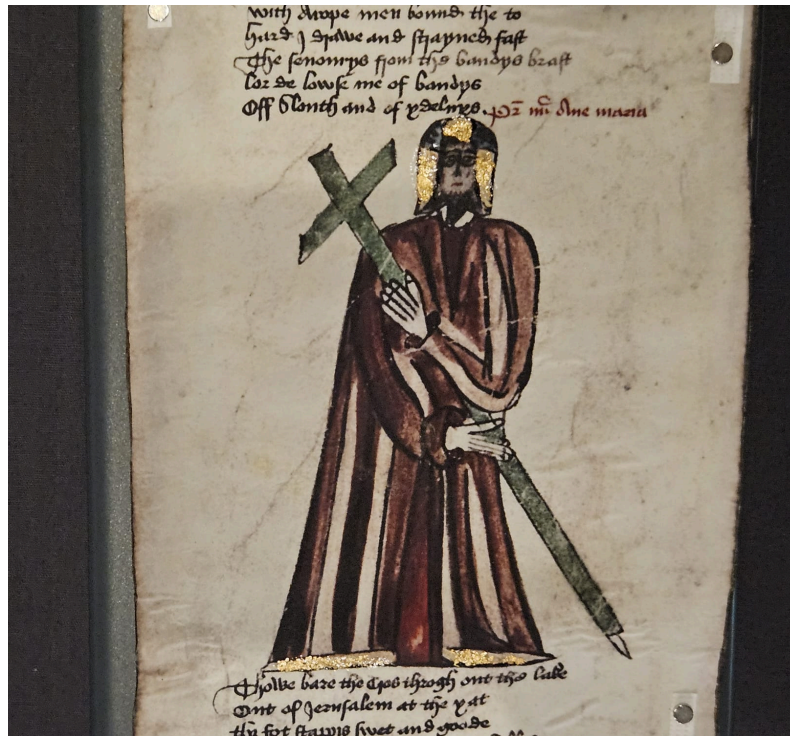 with A rope men bound the to
hard I drawe and strayned fast
The senowrys from ths bandys brast
lor de lowse me of bandys
Off Slouth and of ydelnys. pr nr Ave maria
Thowe bare the Cros throgh out the lake
Out of Jerusalem at the yat
thy fot stappis swet and goode